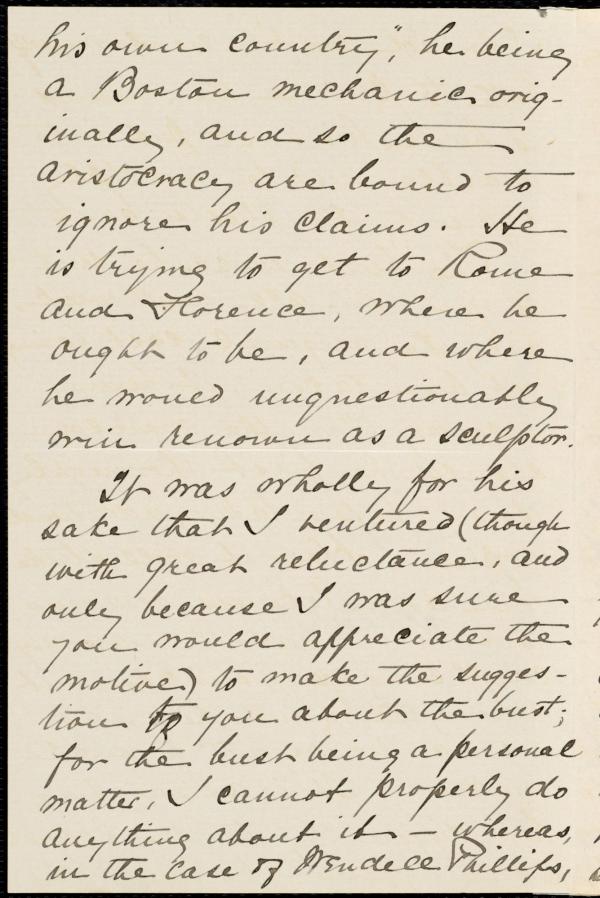 his own country", he being
a Boston mechanic orig-
inally, and so the
aristocracy are bound to
ignore his claims. He
is trying to get to Rome
and Florence, where he
ought to be, and where
he would unquestionably
win renown as a sculptor.
It was wholly for his
sake that I ventured (though
with great reluctance, and
only because I was sure
you would appreciate the
motive) to make the sugges-
tion to you about the bust;
for the bust being a personal
matter, I cannot properly do
anything about it — whereas,
in the case of Wendell Phillips,